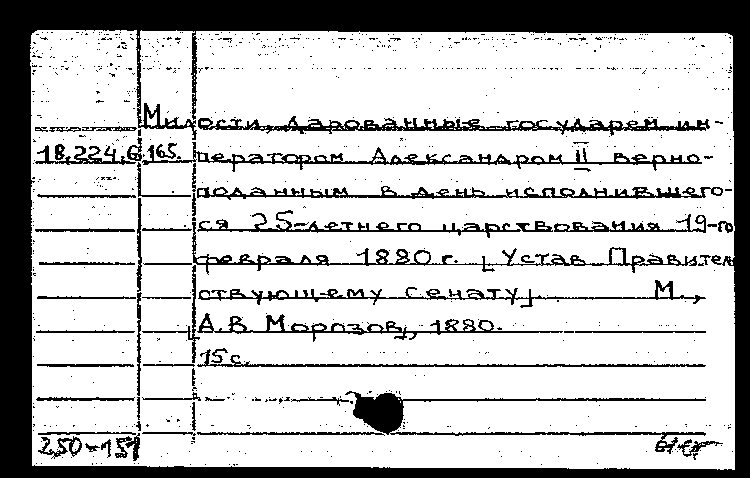 Милости, дарованные государем им-
18.224.6.165. ператором Александром II верно-
поданным в день исполнившего-
ся 25-летнего царствования 19-го
февраля 1880 г. [Устав Правитель
ствующему сенату]. М.,
[А.В. Морозов], 1880.
15 с.
250-157